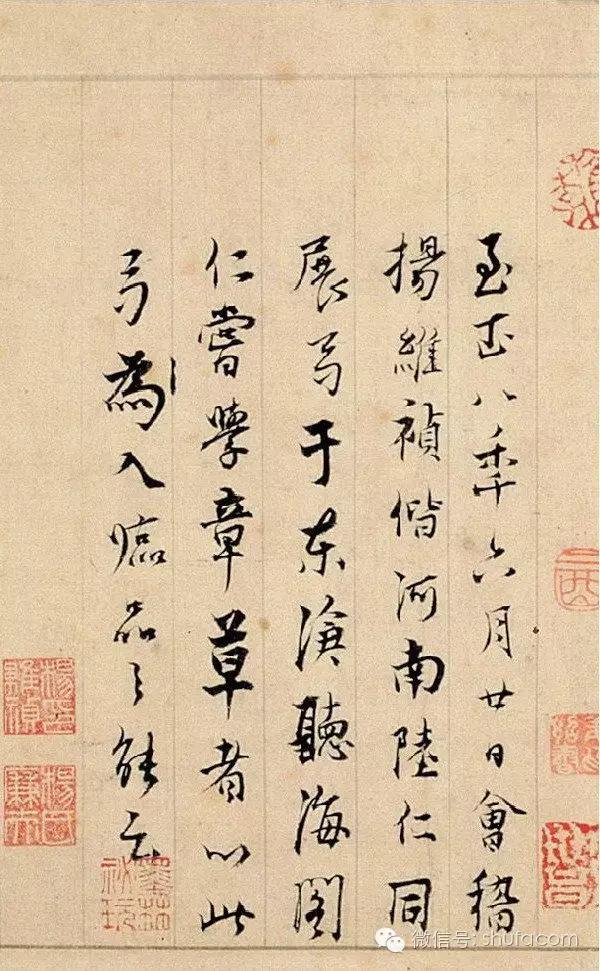 至正八秊六月廿日會稽
楊維禎偕河南陸仁同
展弓于東滄聽海閣
仁嘗學章草者以此
弓為入臨品之能云
墨林祕玩
微信号: shufacom